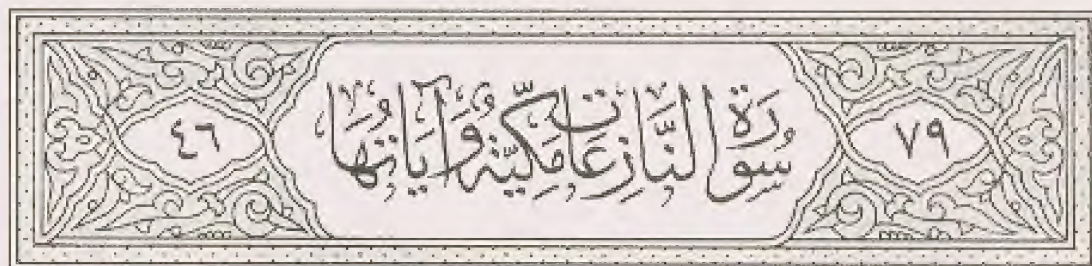 ٧٩ سُورَةُ النَّازِعَاتِ مَكِّيَّةٌ وَآيَاتُهَا ٤٦